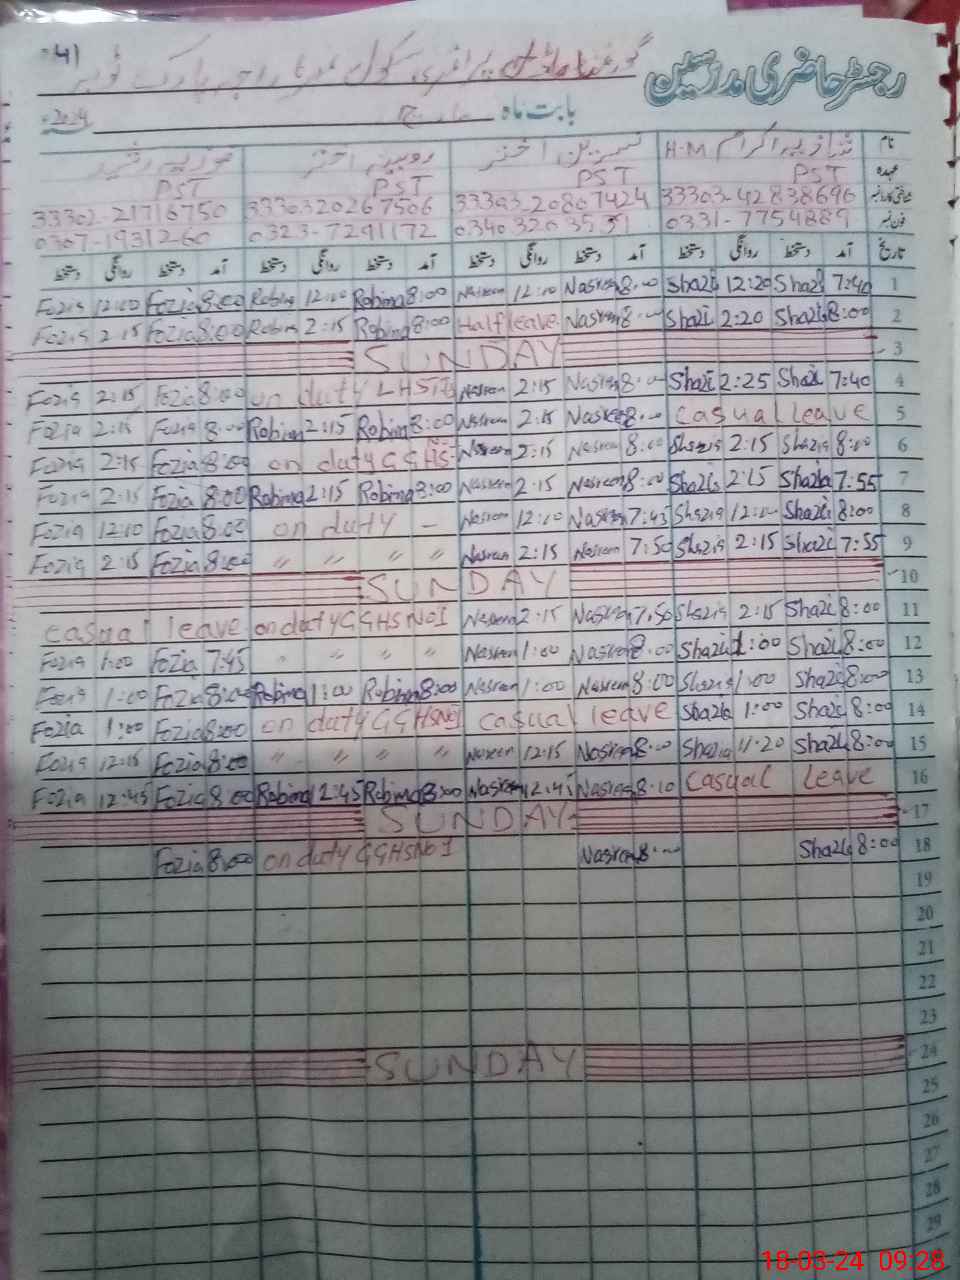 رجسٹر حاضری مدرسین
بابت ماہ مارچ 2024
نام شازیہ اکرام H-M نسرین اختر روبینہ اختر فوزیہ رشید
عہدہ PST PST PST PST
33303-42838696 33303-20807424 3330320267506 33302-21716750
فون نمبر 0331-7754889 0340320 0323-7291172 0307-1931260
تاریخ آمد دستخط روانگی دستخط آمد دستخط روانگی دستخط آمد دستخط روانگی دستخط آمد دستخط روانگی دستخط
1 7:40 Shazi 12:20 Shazi 8:00 Nasreen 12:10 Nasreen 8:00 Robina 12:10 Robina 8:00 Fozia 12:10 Fozia
2 8:00 Shazia 2:20 Shazi 8:00 Nasreen Half leave 8:00 Robina 2:15 Robina 8:00 Fozia 2:15 Fozia
3 SUNDAY
4 7:40 Shazi 2:25 Shazi 8:00 Nasreen 2:15 Nasreen on duty 8:00 Fozia 2:15 Fozia
5 Casual leave 8:00 Nasreen 2:15 Nasreen 8:00 Robina 2:15 Robina 8:00 Fozia 2:15 Fozia
6 8:00 Shazia 2:15 Shazia 8:00 Nasreen 2:15 Nasreen on duty GGHS 8:00 Fozia 2:15 Fozia
7 7:55 Shazia 2:15 Shazia 8:00 Nasreen 2:15 Nasreen 8:00 Robina 2:15 Robina 8:00 Fozia 2:15 Fozia
8 8:00 Shazi 12:10 Shazia 7:45 Nasreen 12:10 Nasreen on duty — 8:00 Fozia 12:10 Fozia
9 7:55 Shazi 2:15 Shazia 7:50 Nasreen 2:15 Nasreen 〃 〃 〃 〃 8:00 Fozia 2:15 Fozia
10 SUNDAY
11 8:00 Shazi 2:15 Shazia 7:50 Nasreen 2:15 Nasreen on duty GGHS NO1 Casual leave
12 8:00 Shazi 1:00 Shazi 8:00 Nasreen 1:00 Nasreen 〃 〃 〃 〃 7:45 Fozia 1:00 Fozia
13 8:00 Shazia 1:00 Shazia 8:00 Nasreen 1:00 Nasreen 8:00 Robina 1:00 Robina 8:00 Fozia 1:00 Fozia
14 8:00 Shazi 1:00 Shazia Casual leave on duty GGHSNO1 8:00 Fozia 1:00 Fozia
15 8:00 Shazi 11:20 Shazia 8:00 Nasreen 12:15 Nasreen 〃 〃 〃 〃 8:00 Fozia 12:15 Fozia
16 Casual Leave 8:10 Nasreen 12:45 Nasreen 8:00 Robina 12:45 Robina 8:00 Fozia 12:45 Fozia
17 SUNDAY
18 8:00 Shazia 8:00 Nasreen on duty GGHSNO1 8:00 Fozia
19
20
21
22
23
24 SUNDAY
25
26
27
28
29
18-03-24 09:28